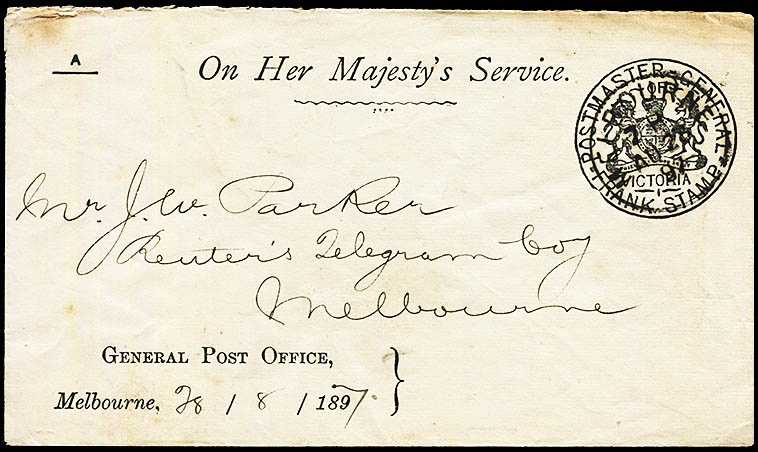 A
On Her Majesty's Service.
POSTMASTER-GENERAL
OF
VICTORIA
1
FRANK STAMP
MELBOURNE
Mr. J. W. Parker
Reuter's Telegram Coy
Melbourne
GENERAL POST OFFICE,
Melbourne, 28 / 8 / 1897